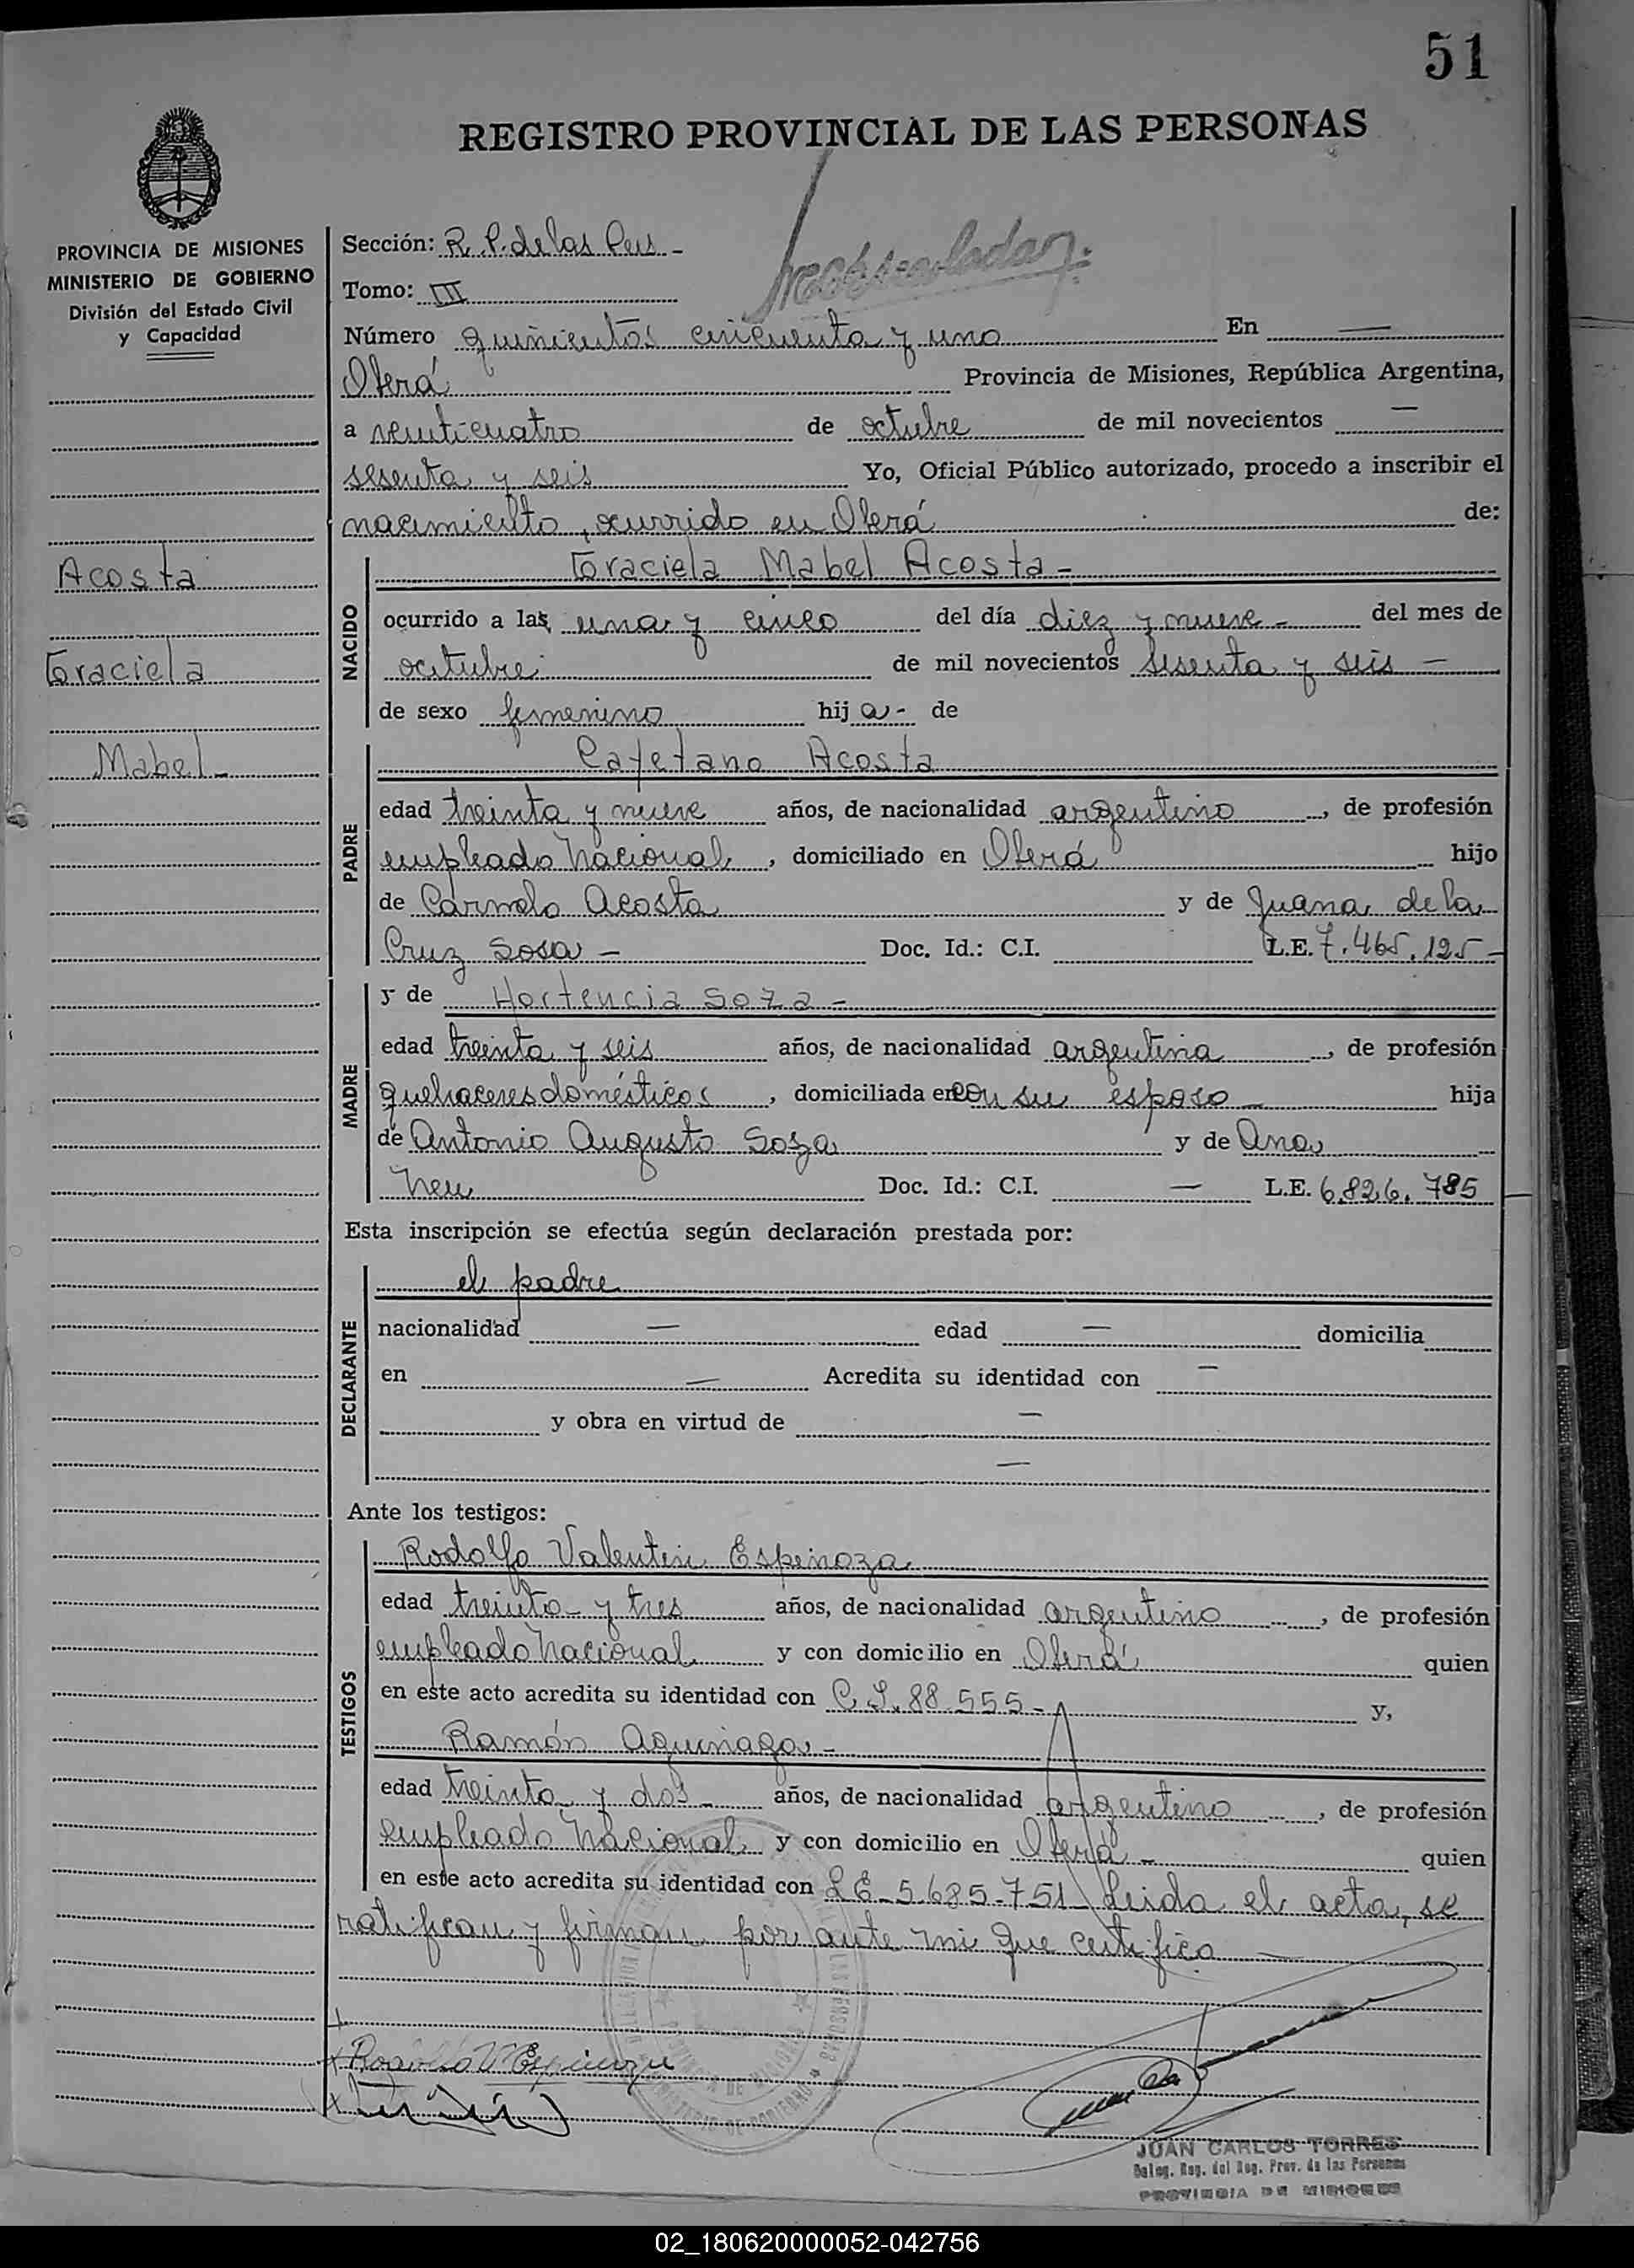 51
REGISTRO PROVINCIAL DE LAS PERSONAS
PROVINCIA DE MISIONES
MINISTERIO DE GOBIERNO
División del Estado Civil
y Capacidad
Acosta
Graciela
Mabel
Sección: R. P. de las Pers -
Tomo: III
Número quinientos cincuenta y uno En —
Oberá Provincia de Misiones, República Argentina,
a veinticuatro de octubre de mil novecientos —
sesenta y seis Yo, Oficial Público autorizado, procedo a inscribir el
nacimiento, ocurrido en Oberá de:
NACIDO
Graciela Mabel Acosta -
ocurrido a las una y cinco del día diez y nueve - del mes de
octubre de mil novecientos sesenta y seis —
de sexo femenino hij a - de
PADRE
Cayetano Acosta
edad treinta y nueve años, de nacionalidad argentino, de profesión
empleado Nacional, domiciliado en Oberá hijo
de Carmelo Acosta y de Juana de la
Cruz Sosa — Doc. Id.: C.I. L.E. 7.465.125 -
MADRE
y de Hortencia Soza -
edad treinta y seis años, de nacionalidad argentina, de profesión
quehaceres domésticos, domiciliada en con su esposo — hija
de Antonio Augusto Soza y de Ana
Neu Doc. Id.: C.I. — L.E. 6.826.785
Esta inscripción se efectúa según declaración prestada por:
DECLARANTE
el padre
nacionalidad — edad — domicilia
en — Acredita su identidad con —
y obra en virtud de —
—
Ante los testigos:
TESTIGOS
Rodolfo Valentin Espinoza
edad treinta y tres años, de nacionalidad argentino, de profesión
empleado Nacional y con domicilio en Oberá quien
en este acto acredita su identidad con C.I. 88.555 - y,
Ramón Aguinaga -
edad treinta y dos años, de nacionalidad argentino, de profesión
empleado Nacional y con domicilio en Oberá - quien
en este acto acredita su identidad con L.E. 5.685.751 Leida el acta, se
ratifican y firman por ante mi que certifico —
Rodolfo V Espinoza
JUAN CARLOS TORRES
Deleg. Reg. del Reg. Prov. de las Personas
PROVINCIA DE MISIONES
02_180620000052-042756